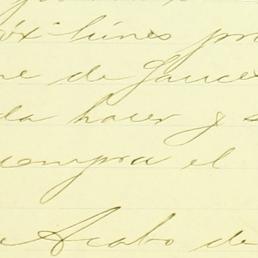 óx lúnes pro
de
da hacer y s
compra el
Acabo de